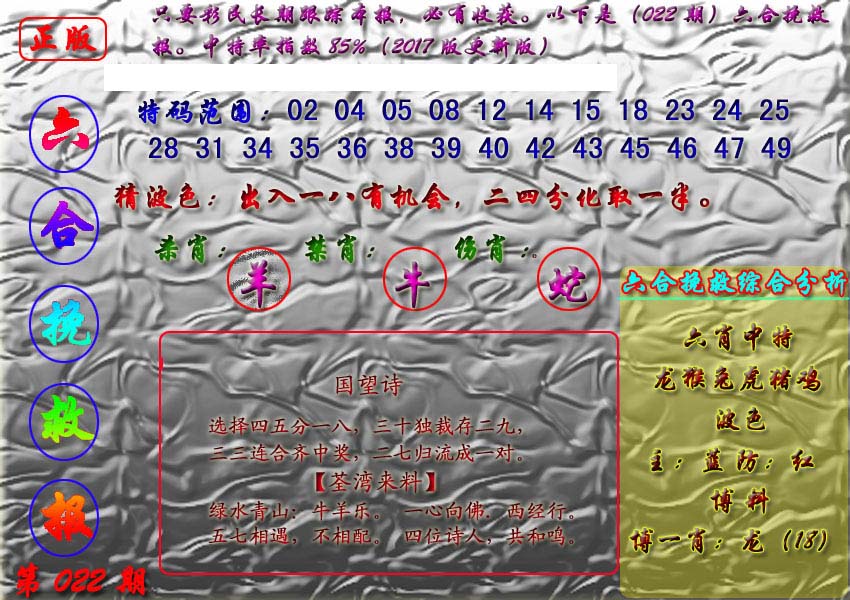 正版
只要彩民长期跟踪本报，必有收获。以下是（022期）六合挽救
报。中特率指数85%（2017版更新版）
六合挽救报
第022期
特码范围：02 04 05 08 12 14 15 18 23 24 25
28 31 34 35 36 38 39 40 42 43 45 46 47 49
猜波色：出入一八有机会，二四分化取一半。
杀肖：羊 禁肖：牛 伤肖：。蛇
国望诗
选择四五分一八，三十独裁存二九，
三三连合齐中奖，二七归流成一对。
【荃湾来料】
绿水青山：牛羊乐。 一心向佛．两经行。
五七相遇，不相配。 四位诗人，共和鸣。
六合挽救综合分析
六肖中特
龙猴兔虎猪鸡
波色
主：蓝防：红
博料
博一肖：龙（18）